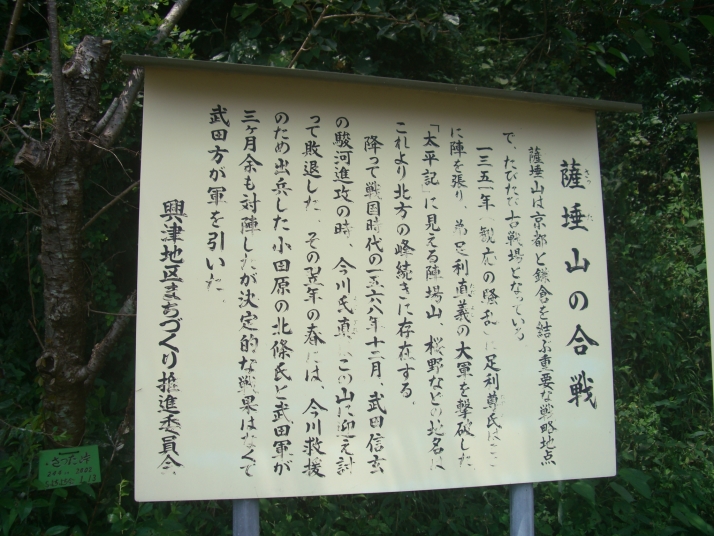 薩埵山の合戦
さった
薩埵山は京都と鎌倉を結ぶ重要な戦略地点
で、たびたび古戦場となっている
一三五一年(観応の騒乱)に足利尊氏はここ
に陣を張り、弟足利直義の大軍を撃破した
「太平記」に見える陣場山、桜野などの地名は
これより北方の峰続きに存在する。
降って戦国時代の一五六八年十二月、武田信玄
の駿河進攻の時、今川氏真はこの山に迎え討
って敗退した、その翌年の春には、今川救援
のため出兵した小田原の北條氏と武田軍が
三ヶ月余も対陣したが決定的な戦果はなくて
武田方が軍を引いた。
興津地区まちづくり推進委員会
さった峠